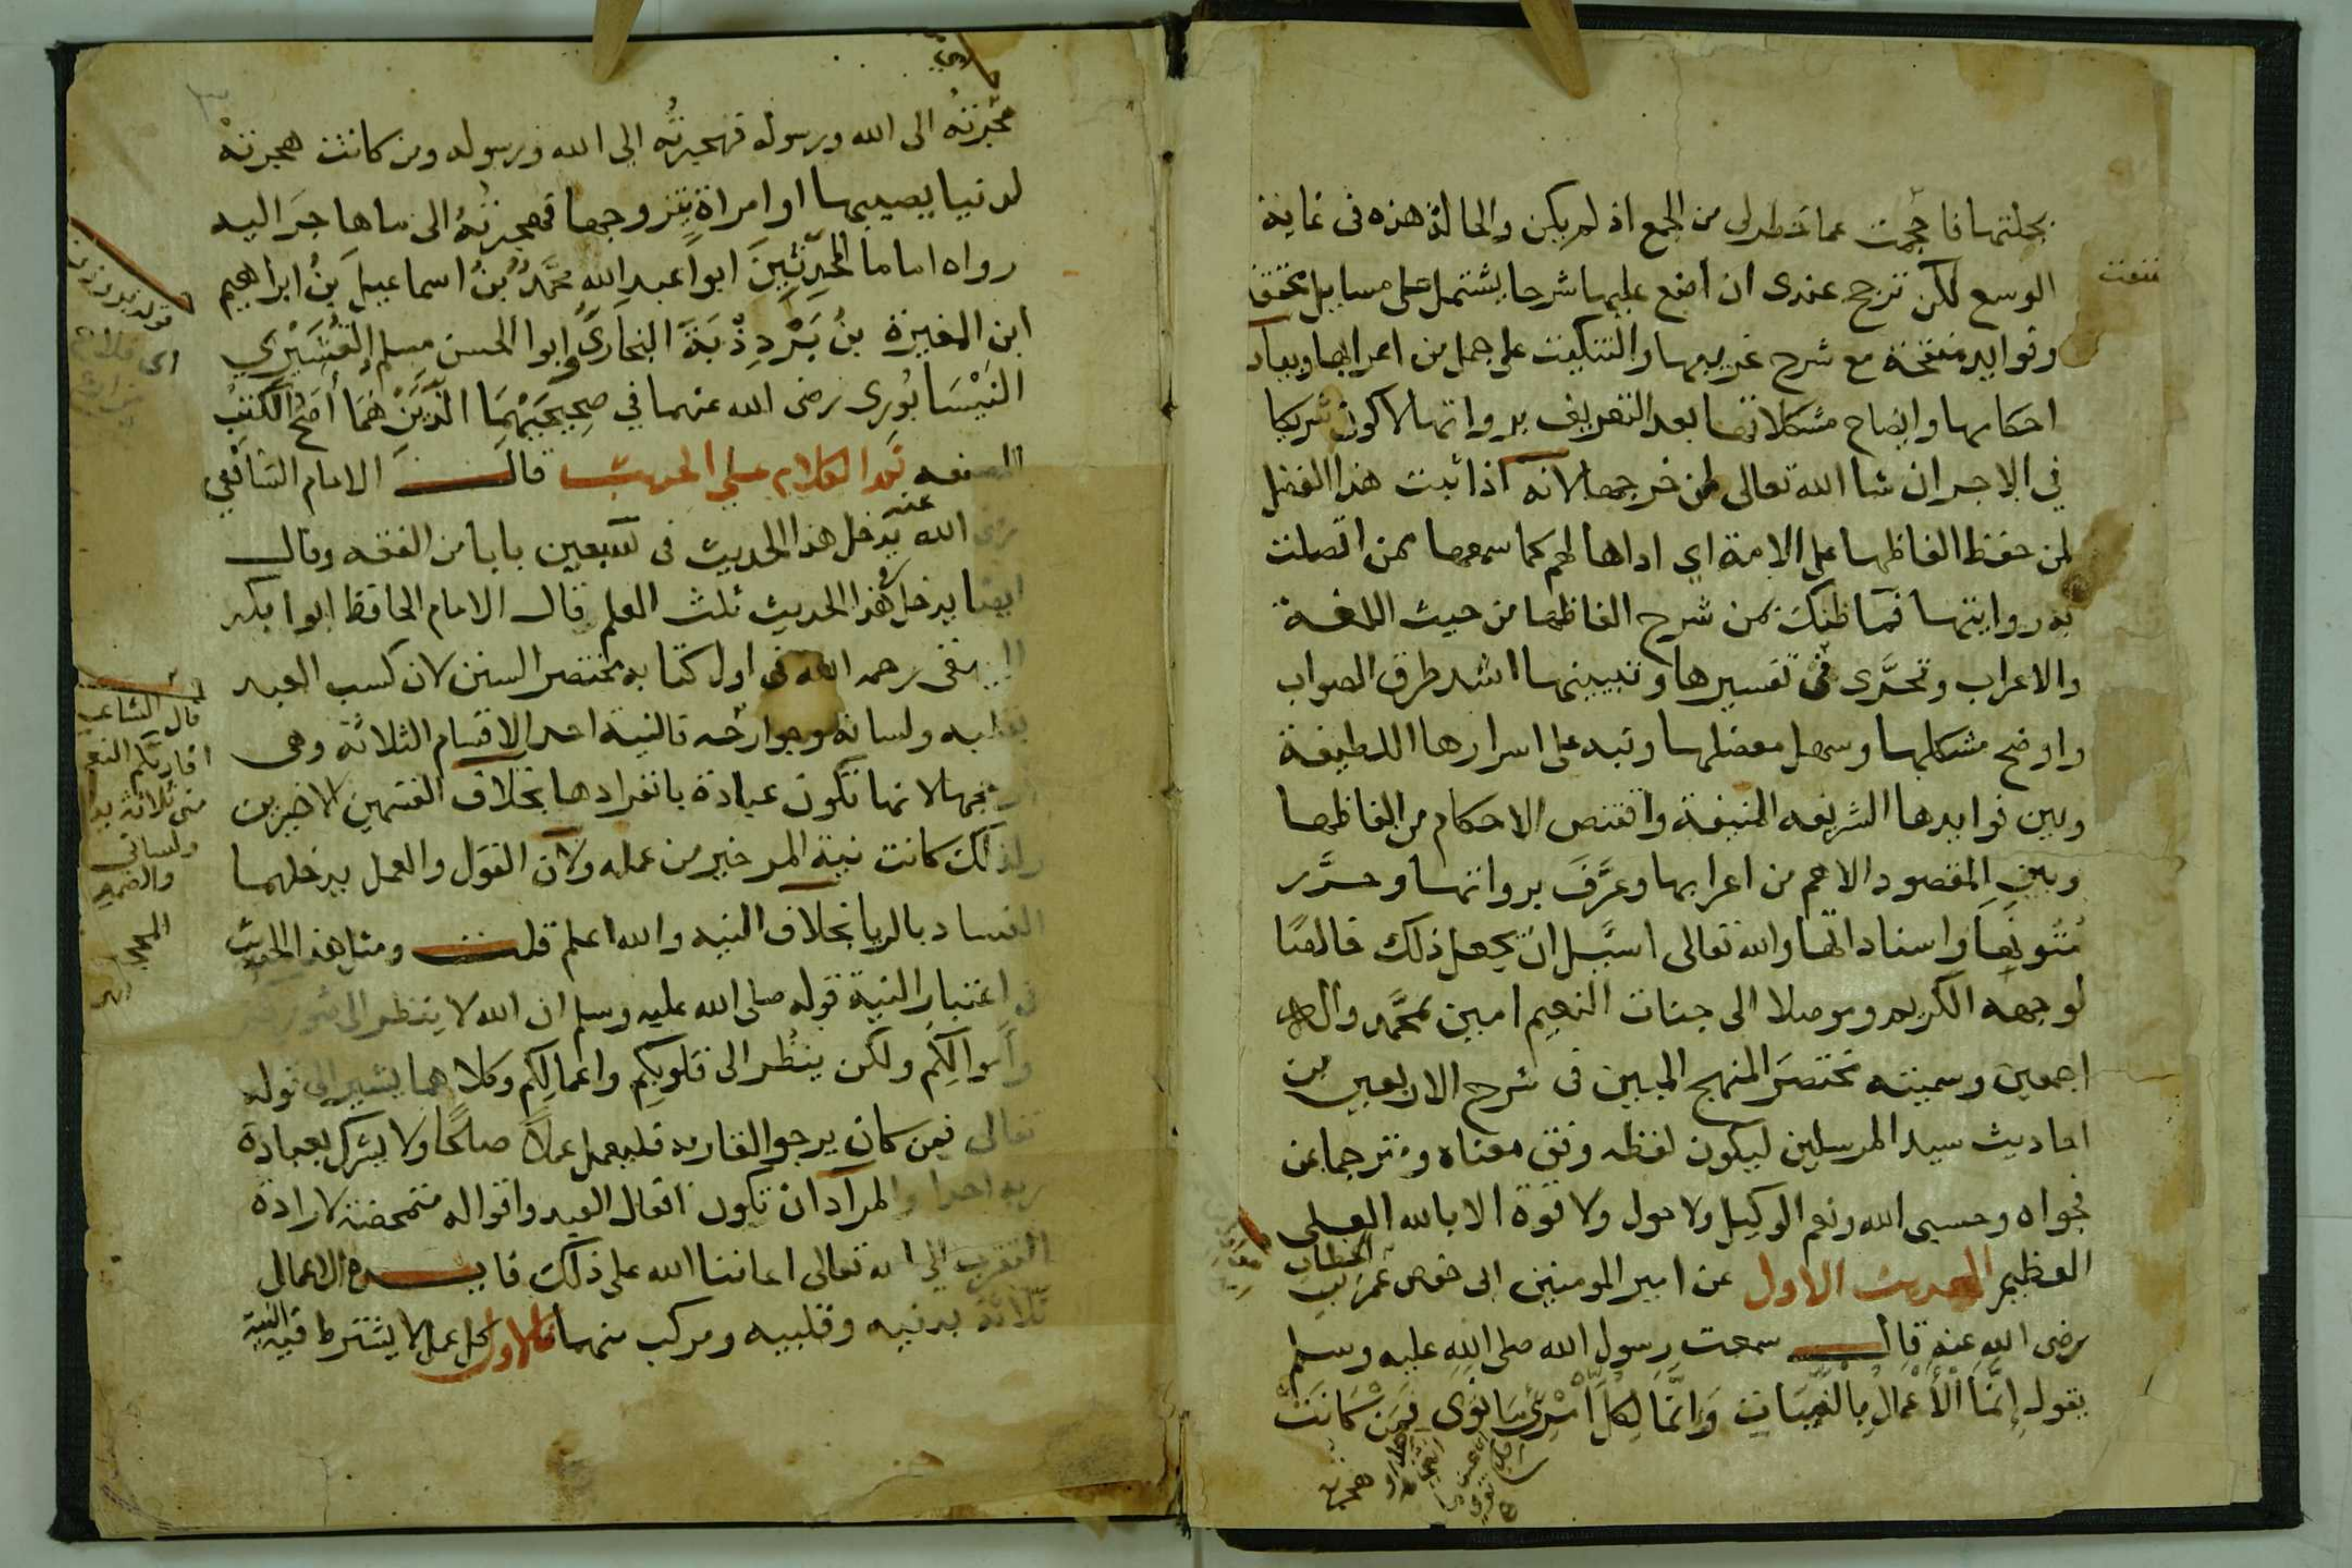 بجملتها فاحجمت عما خطر لى من الجمع اذ لم يكن والحالة هذه فى غاية
الوسع لكن ترجح عندى ان اضع عليها شرحا يشتمل على مسايل محققة
وفوايد منقحة مع شرح غريبها والتنكيت على جمل من اعرابها وبيان
احكامها وايضاح مشكلاتها بعد التعريف برواتها لاكون شريكا
في الاجر ان شا الله تعالى لمن خرجها لانه اذا ثبت هذا الفضل
لمن حفظ الفاظها على الامة اي اداها لهم كما سمعها ممن اتصلت
به روايتها فما ظنك بمن شرح الفاظها من حيث اللغة
والاعراب وتحرَّى فى تفسيرها وتبيينها اشد طرق الصواب
واوضح مشكلها وسهل معضلها ونبه على اسرارها اللطيفة
وبين فوايدها الشريفه المنيفة واقتنص الاحكام من الفاظها
وبين المقصود الاهم من اعرابها وعرَّف برواتها وحرَّر
متونها واسناداتها والله تعالى اسئل ان يجعل ذلك خالصًا
لوجهه الكريم وموصلا الى جنات النعيم امين بمحمَّد واله
اجمعين وسميته مختصر المنهج المبين فى شرح الاربعين من
احاديث سيد المرسلين ليكون لفظه وفق معناه ومترجما عن
فحواه وحسبى الله ونعم الوكيل ولا حول ولا قوة الا بالله العلى
العظيم الحديث الاول عن امير المومنين ابى حفص عمر بن الخطاب
رضى الله عنه قال سمعت رسول الله صلى الله عليه وسلم
يقول إِنَّمَا الْأَعْمَالُ بِالنِّيَّاتِ وَاِنَّمَا لِكُلِّ امْرِئٍ مَا نَوَى فَمَنْ كَانَتْ
هجرته
هجرتُه الى الله ورسوله فهجرتُه الي الله ورسوله ومن كانت هجرتهْ
لدنيا يصيبها او امراة يتزوجها فهجرتهُ الى ما هاجَر اليه
رواه اماما المحدِّثينَ ابوا عبد الله محمَّدُ بنُ اسماعيلَ بنُ ابراهيم
ابن المغيرة بنُ بَرْدِذْبَةَ البخارىُّ وابوا الحسن مسلم القُشَيْري
النَيْسَابُورى رضى الله عنهما في صحِيحَيْهِمَا الذَيْنِ هُمَا أصَحُّ الكُتبْ
المصنفه ثم الكلام على الحديث قال الامام الشافعي
رضى الله عنه يدخل هذا الحديث فى سبعين بابا من الفقه وقال
ايضا يدخل فى هذا الحديث ثلث العلم قال الامام الحافظ ابوا بكر
البيهقى رحمه الله فى اول كتابه مختصر السنن لان كسب العبد
بقلبه ولسانه وجوارحه فالنية احد الاقسام الثلاثة وهى
ارجحها لانها تكون عبادة بانفرادها بخلاف القسمين الاخيرين
ولذلك كانت نية المر خير من عمله ولان القول والعمل يدخلهما
الفساد بالريا بخلاف النيه والله اعلم قلت ومثل هذا الحديث
فى اعتبار النية قوله صلى الله عليه وسلم ان الله لا ينظر الى صوركم
وأموالكم ولكن ينظر الى قلوبكم واعمالكم وكلاهما يشير الى قوله
تعالى فمن كان يرجوا لقا ربه فليعمل عملاً صالحًا ولا يشرك بعبادة
ربه احدا والمراد ان تكون افعال العبد واقواله متمحضة لارادة
التقرب الي الله تعالى اعاننا الله على ذلك فايدة الاعمال
ثلاثة بدنيه وقلبيه ومركب منهما فالاول كل عمل لا يشترط فيه النية
قال الشاعر
افادتكم النعما
منى ثلاثة يدى
ولسانى
والضمير
المحجبا